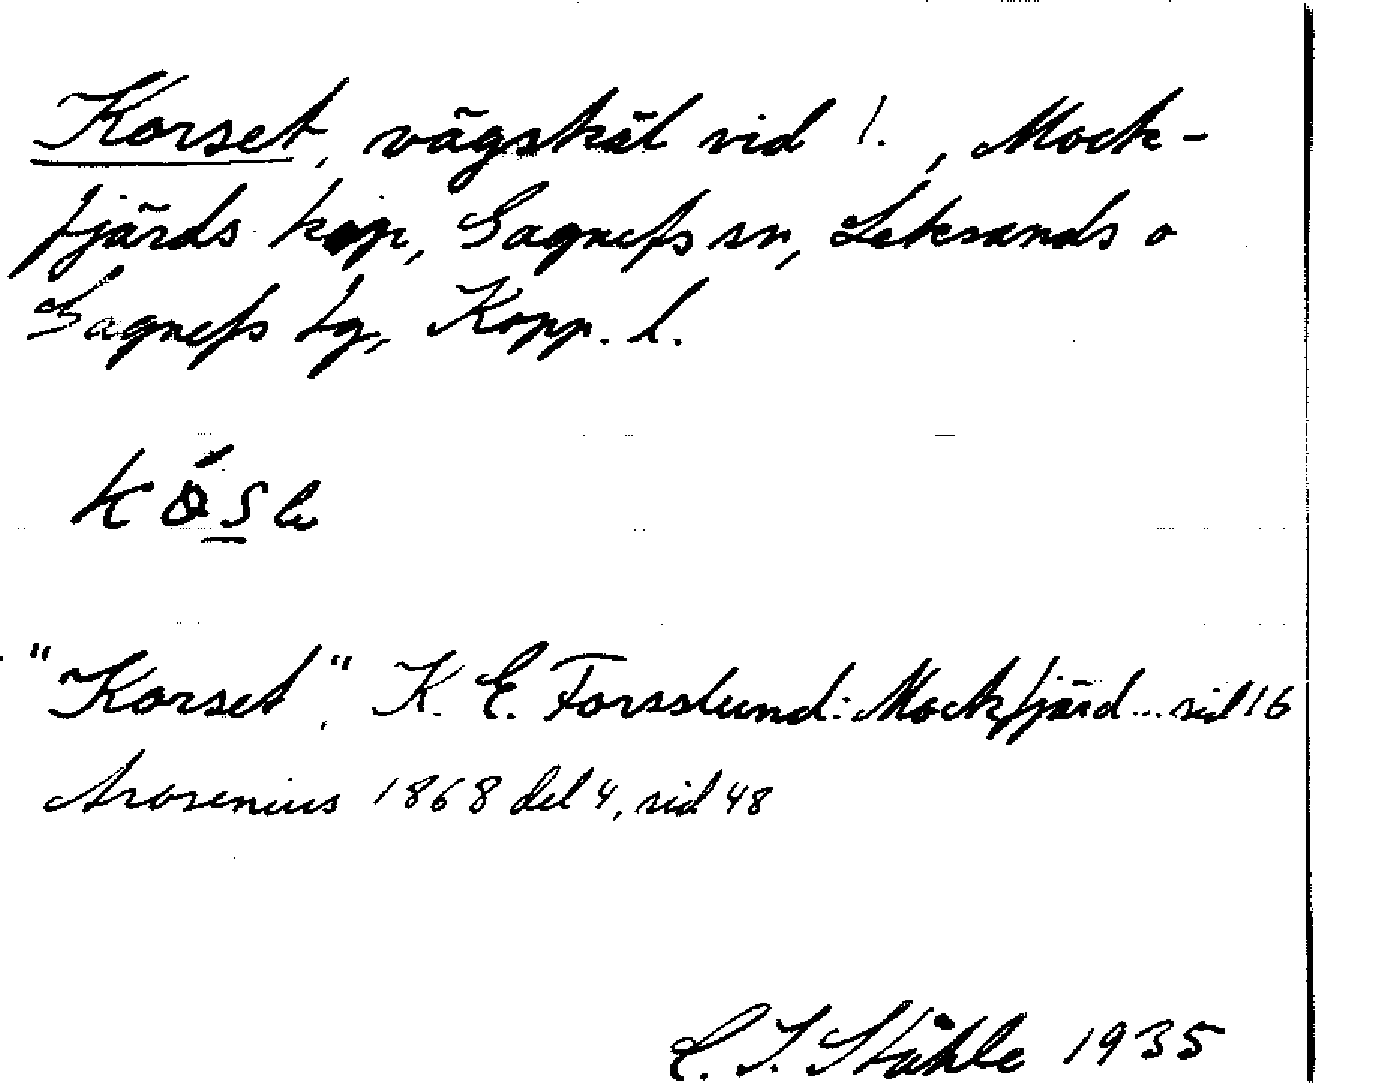 Korset, vägskäl vid !., Mock-
fjärds kap, Gagnefs sn, Leksands o
Gagnefs tg, Kopp. l.
"Korset". K. E. Forsslund: Mockfjärd... sid 16
Arosenius 1868 del 4, sid 48
C. I. Ståhle 1935